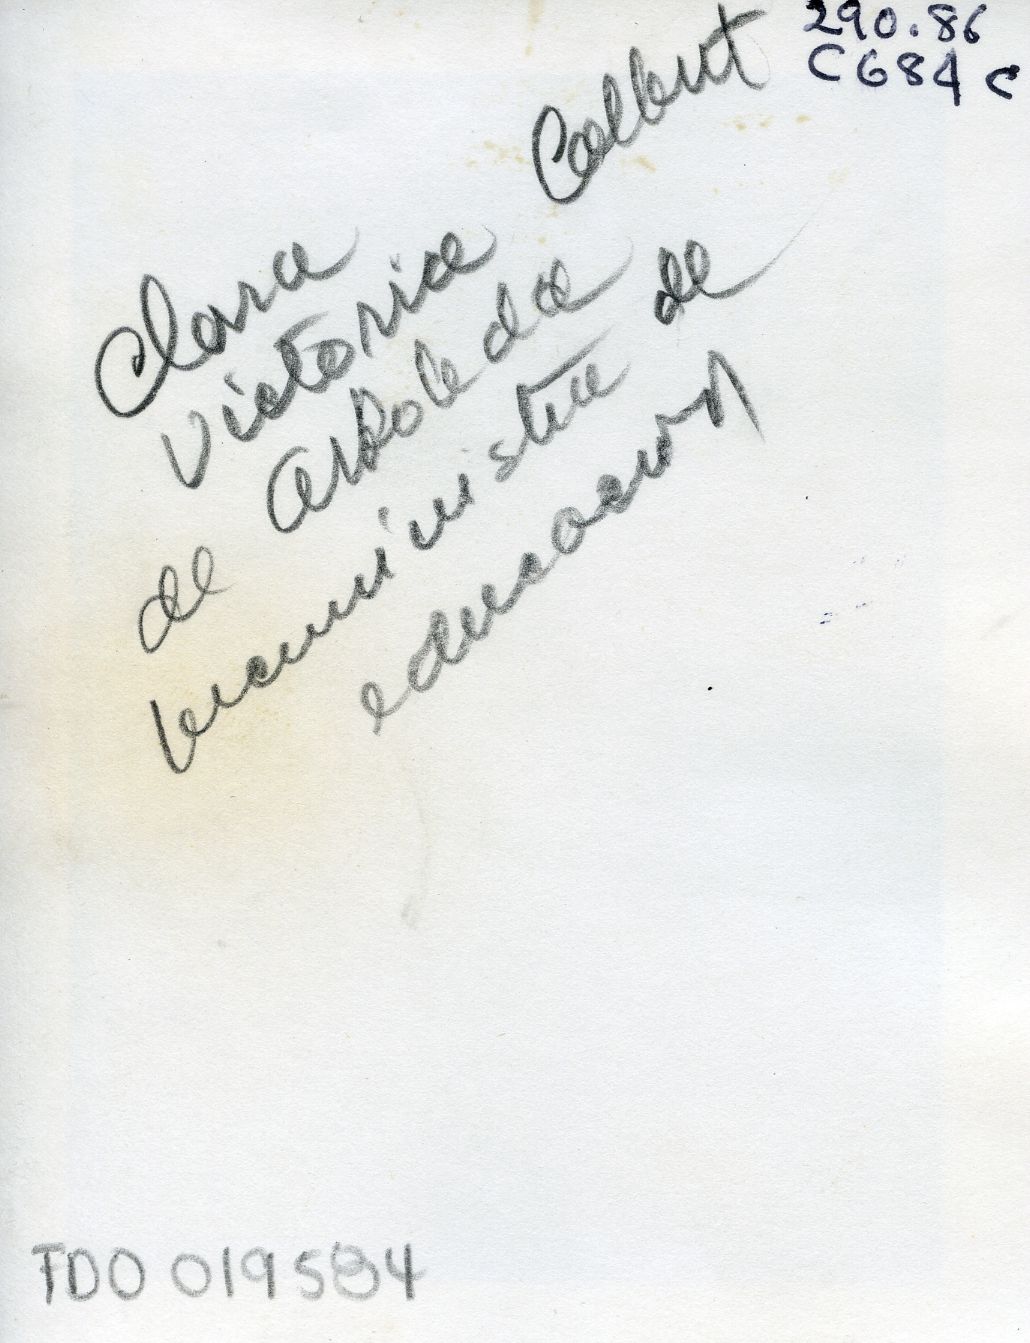 290.86
C684c
Clara
Victoria Colbert
de Arboleda
viceministra de
educación
TDO 019584